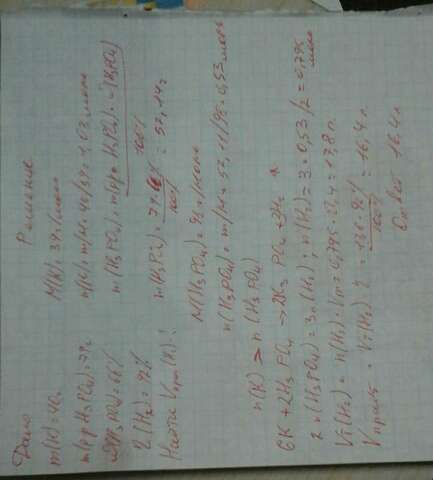 Дано
m(K)=40г
m(р-р H3PO4)=79г
ω(H3PO4)=66%
η(H2)=92%
Найти Vпр(H2)-?
Решение
M(K)=39г/моль
n(K)=m/M=40/39=1,03 моль
m(H3PO4)=m(р-р H3PO4)·ω(H3PO4)/100%
m(H3PO4)=79·66%/100%=52,14г
M(H3PO4)=98г/моль
n(H3PO4)=m/M=52,14/98=0,53 моль
n(K) > n(H3PO4)
6K+2H3PO4→2K3PO4+3H2
2n(H3PO4)=3n(H2); n(H2)=3·0,53/2=0,795 моль
VT(H2)=n(H2)·Vm=0,795·22,4=17,8л.
Vпракт=VT(H2)·η/100%=16,4л
Ответ 16,4л